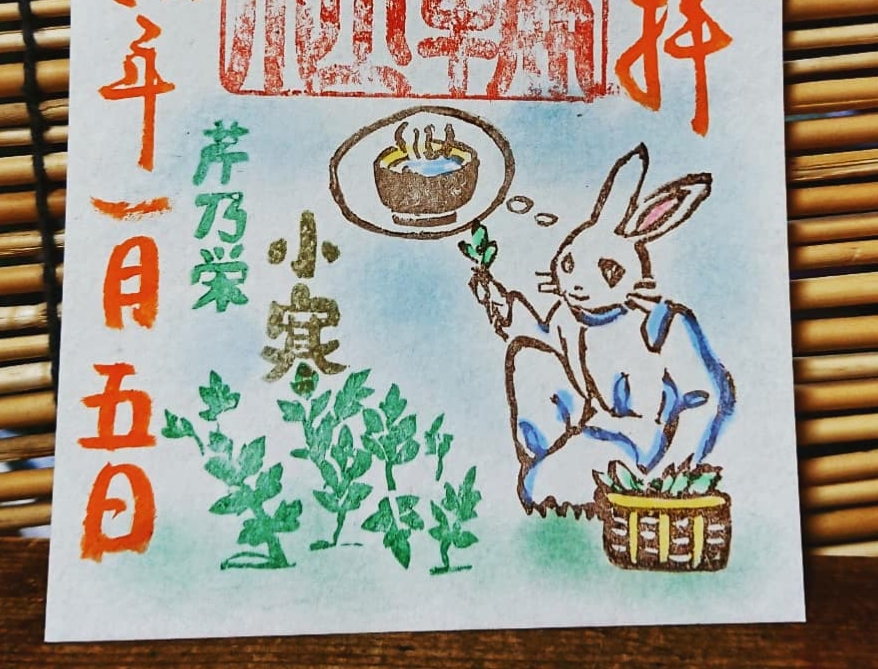 拝
小寒
芹乃栄
年一月五日